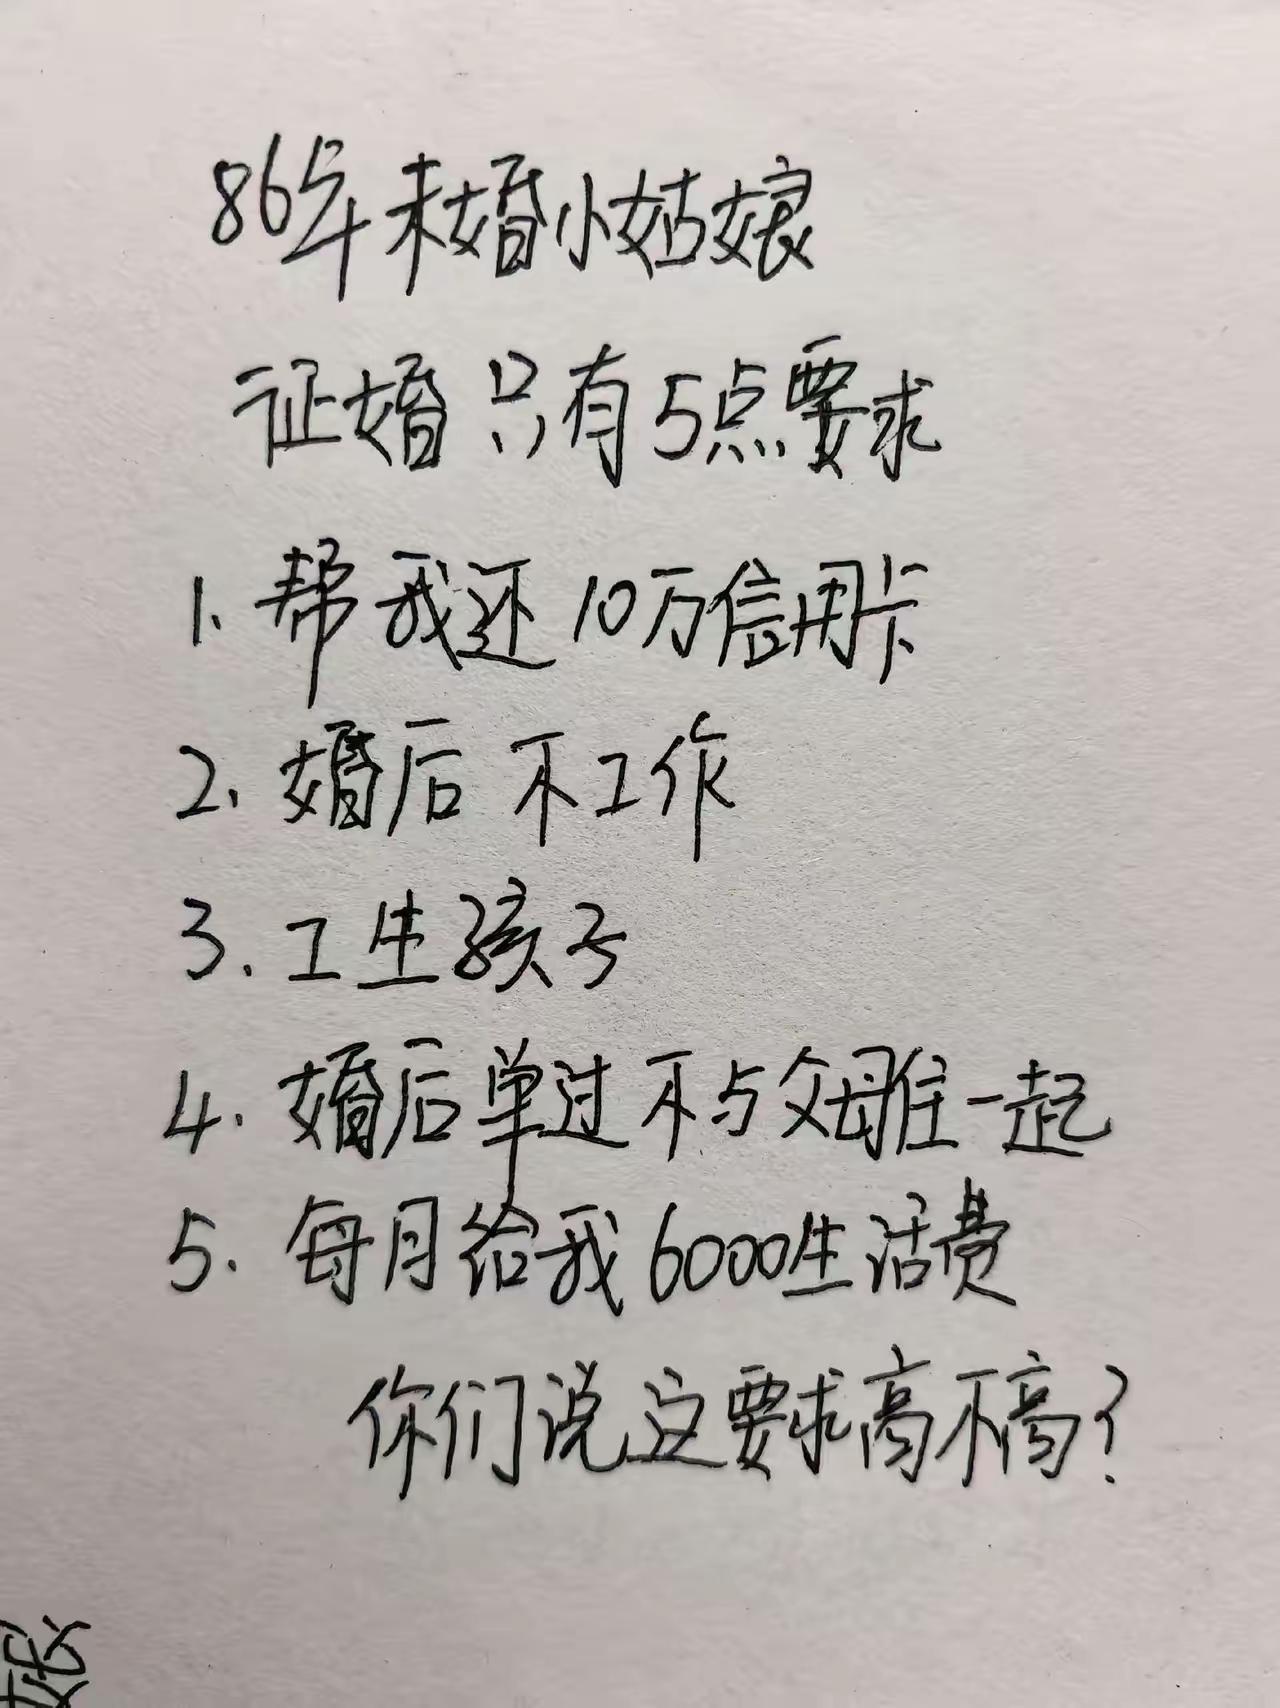 86年未婚小姑娘
证婚只有5点要求
1、帮我还10万信用卡
2、婚后不工作
3.工生孩子
4.婚后单过不与父母住一起
5.每月给我6000生活费
你们说这要求高不高?